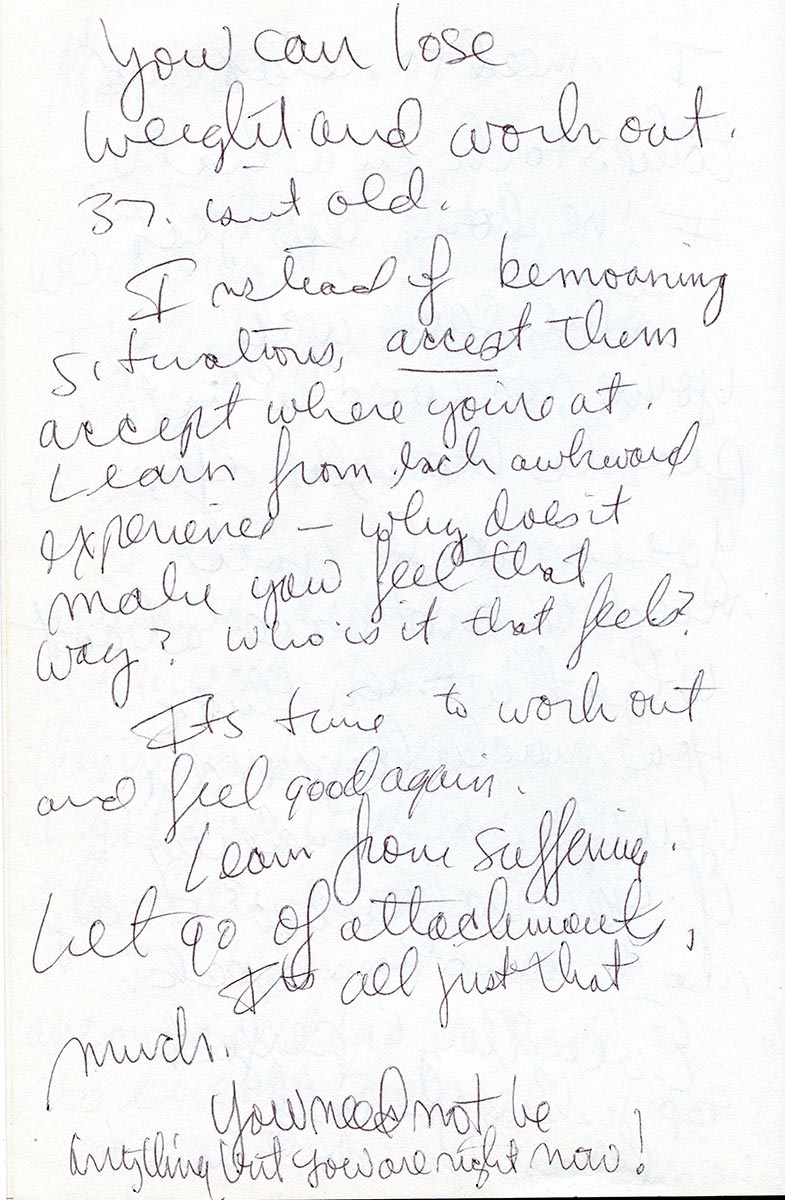 You can lose
weight and work out.
37. isnt old.
Instead of bemoaning
situations, accept them
accept where you're at.
Learn from each awkward
experience – why does it
make you feel that
way? who is it that feels?
Its time to work out
and feel good again.
Learn from suffering.
Let go of attachments,
Its all just that
much.
You need not be
anything but you are right now!